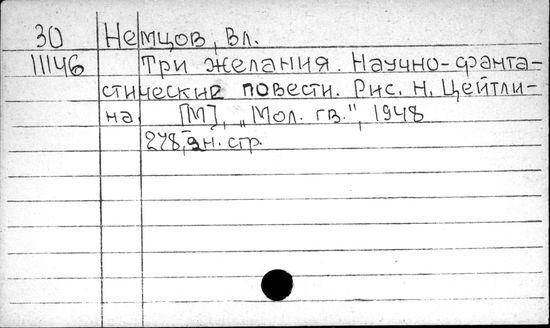 30 Немцов, Вл.
11146 Три желания. Научно-фанта-
стические повести. Рис. Н. Цейтли-
на. [М], „Мол. гв.", 1948
278, 2н. стр.